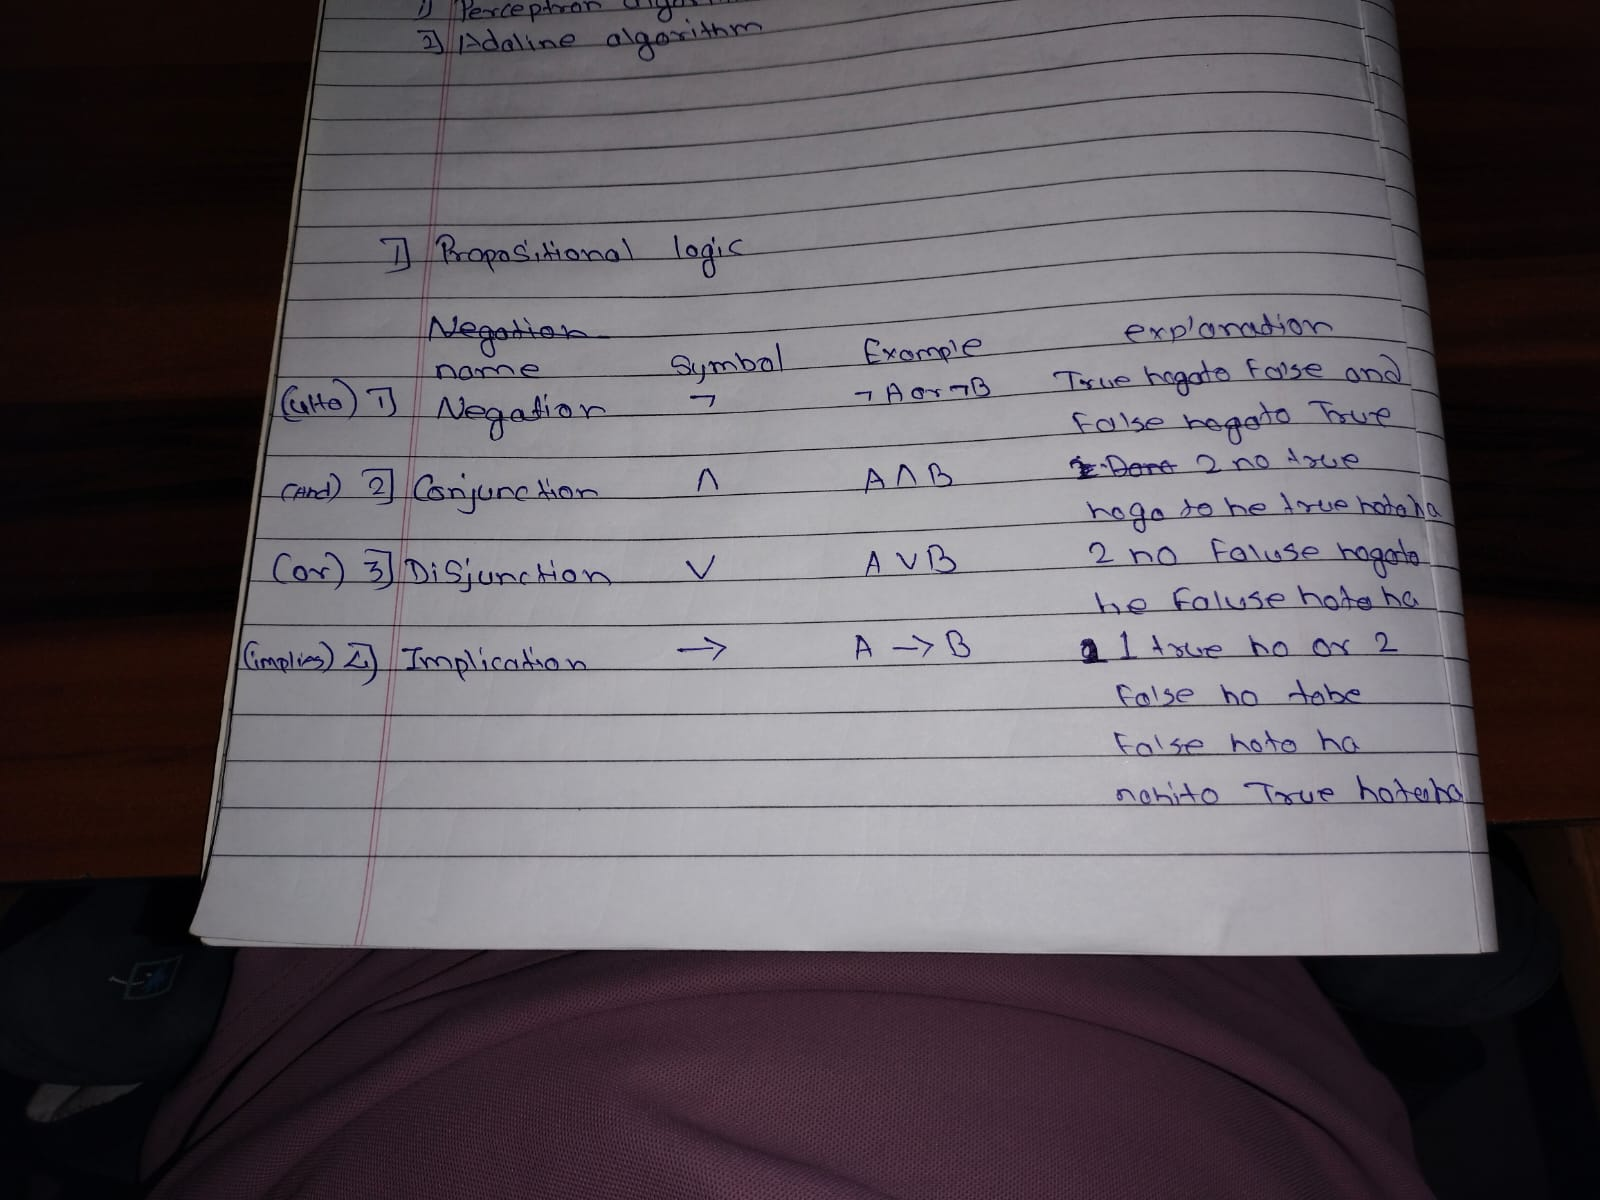 1) Perceptron
2) Adaline algorithm
1) Propositional logic
Negation
name Symbol Example explanation
1) Negation ¬ ¬A or ¬B True hogato False and
False hogato True
(And) 2) Conjunction ∧ A∧B 2 no true
hoga to he true hota ha
(or) 3) Disjunction ∨ A∨B 2 no Faluse hogato
he Faluse hota ha
(implies) 4) Implication → A → B 1 true ho or 2
False ho tabe
False hoto ha
nahito True hoteha